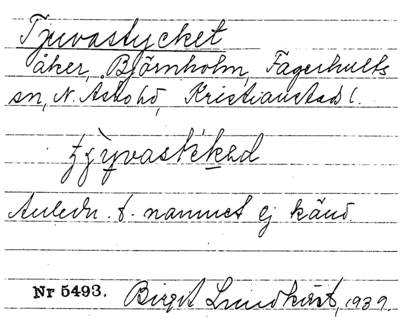 Tjuvastycket
åker, Björnholm, Fagerhults
sn, N. Åsbo hd, Kristianstad l.
Anledn. t. namnet ej känd.
Nr 5493. Birgit Lundkvist, 1939.